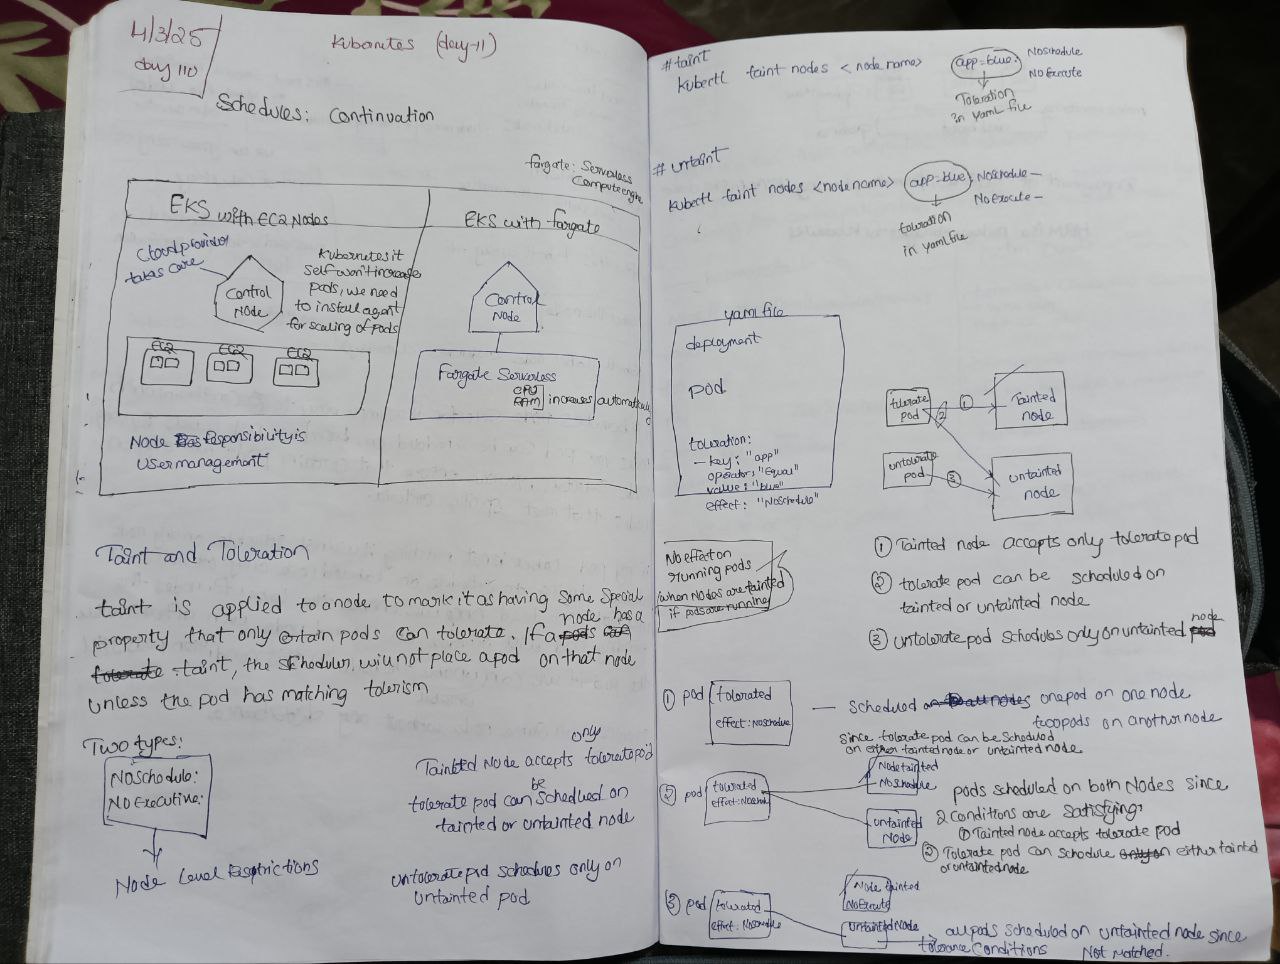 4/3/25
day 110
Kubanetes (day-11)
Schedules: Continuation
fargate: Serverless
Compute engine
EKS with EC2 Nodes
EKS with fargate
Cloud provider
takes care
Control
Node
Kubernetes it
self won't increase
pods, we need
to install agent
for scaling of pods
Control
Node
EC2
EC2
EC2
Fargate Serverless
CPU
RAM
increases automatically
Node Responsibility is
User management
Taint and Toleration
taint is applied to a node to mark it as having some special
property that only certain pods can tolerate. If a node has a
taint, the scheduler will not place a pod on that node
unless the pod has matching tolerism
Two types:
NoSchedule:
NO Executive:
Node Level Restrictions
only
Tainted Node accepts tolerate pod
be
tolerate pod can scheduled on
tainted or untainted node
untolerate pod schedules only on
untainted pod
# taint
kubectl taint nodes <node name> app=blue:
NoSchedule
NO Execute
Toleration
in yaml file
# untaint
kubectl taint nodes <node name> app=blue: NoSchedule -
NoExecute -
toleration
in yaml file
yaml file
deployment
pod
toleration:
- key: "app"
operator: "Equal"
value: "blue"
effect: "NoSchedule"
tolerate
pod
①
②
Tainted
node
untolerate
pod
③
untainted
node
No effect on
running pods
when Nodes are tainted
if pods are running
① Tainted node accepts only tolerate pod
② tolerate pod can be scheduled on
tainted or untainted node
③ untolerate pod schedules only on untainted node
① pod
tolerated
effect: NoSchedule
— Scheduled one pod on one node
two pods on another node
since tolerate pod can be scheduled
on either tainted node or untainted node
② pod
tolerated
effect: NoSchedule
Node tainted
NoSchedule
untainted
Node
pods scheduled on both Nodes since
2 conditions are satisfying.
① Tainted node accepts tolerate pod
② Tolerate pod can schedule either tainted
or untainted node
③ pod
tolerated
effect: NoSchedule
Node tainted
NoExecute
untainted Node
all pods scheduled on untainted node since
tolerance conditions Not matched.